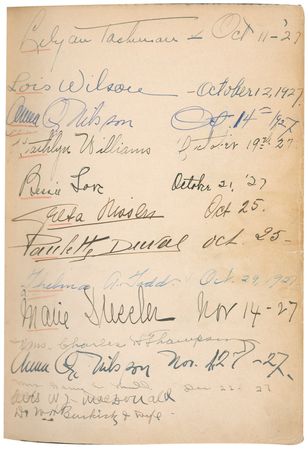 Lilyan Tashman - Oct 11-'27
Lois Wilson - October 12, 1927
Anna Q Nilson Oct 14th 1927
Kathlyn Williams October 19th 27
Bessie Love October 21, '27
Greta Nissen Oct 25.
Paulette Duval Oct. 25-
Thelma A. Todd Oct. 29, 1927
Marie Dressler Nov 14-27
Mrs. Charles H Thompson
Anna Q Nilson Nov. 27-27.
Mrs. C. Hull Dec 22 27
Avis W. MacDonald
Do Wm Buskirk & Wife